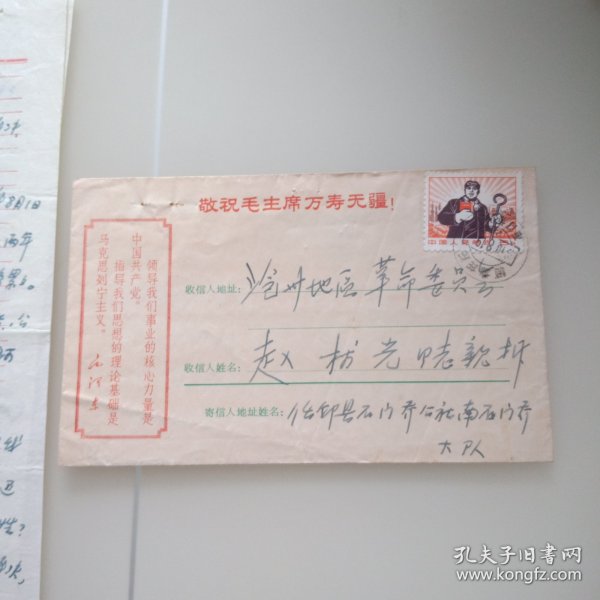 敬祝毛主席万寿无疆！
领导我们事业的核心力量是
中国共产党。
指导我们思想的理论基础是
马克思列宁主义。
毛泽东
收信人地址：沧州地区革命委员会
收信人姓名：赵 光同志亲拆
寄信人地址姓名：任邱县石门桥公社南石门桥
大队
中国人民邮政
8月1日
两年
孔夫子旧书网
www.kongfz.com